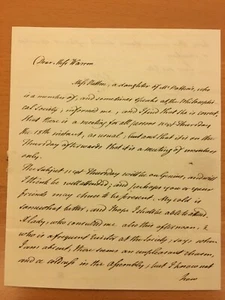 Dear Miss Warren
Miss Pattens, a daughter of Mr Pattens, who
is a member of, and sometimes speaks at the Philosophi-
cal Society, informed me, and I find that she is correct,
that there is a meeting for all persons next Thursday
the 18th instant, as usual, but and that it is on the
Thursday afterwards that it is a meeting of members
only.
The subject next Thursday will be on Genius, and will
I think be well attended; and perhaps you or your
friends may choose to be present. My cold is
somewhat better, and I hope I shall be able to attend.
A lady, who visited me also this afternoon, &
who is a frequent visitor at the Society, says when
I am absent, there seems an unpleasant chasm,
and a coldness in the assembly, but I have not